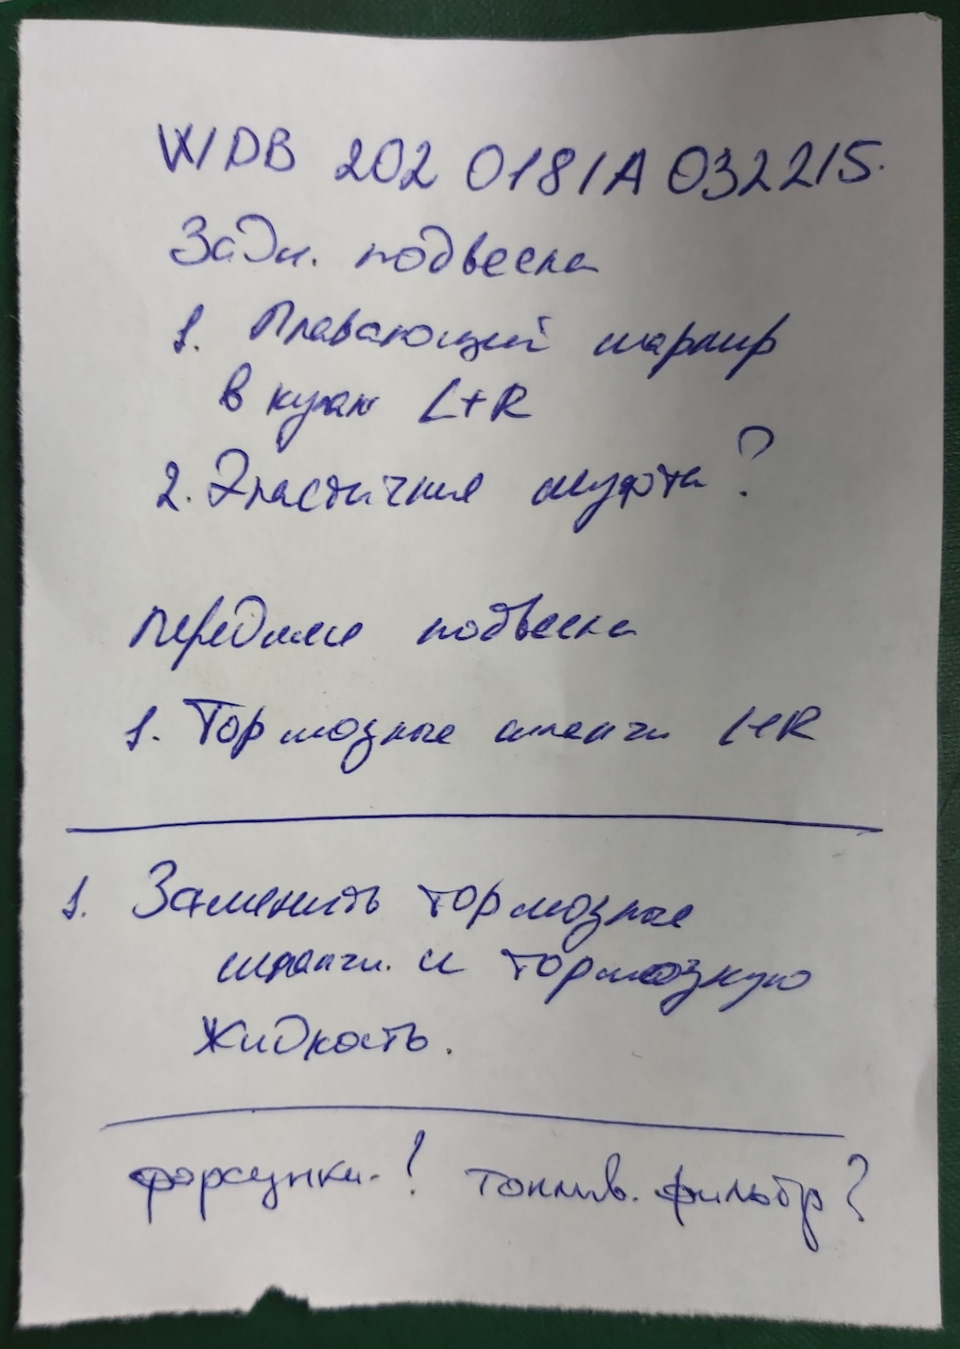 WDB 202 0181A 032215.
Задн. подвеска
1. Плавающий шарнир
в кулак L+R
2. Эластичная муфта?
передняя подвеска
1. Тормозные шланги L+R
1. Заменить тормозные
шланги и тормозную
жидкость.
форсунки! топлив. фильтр?